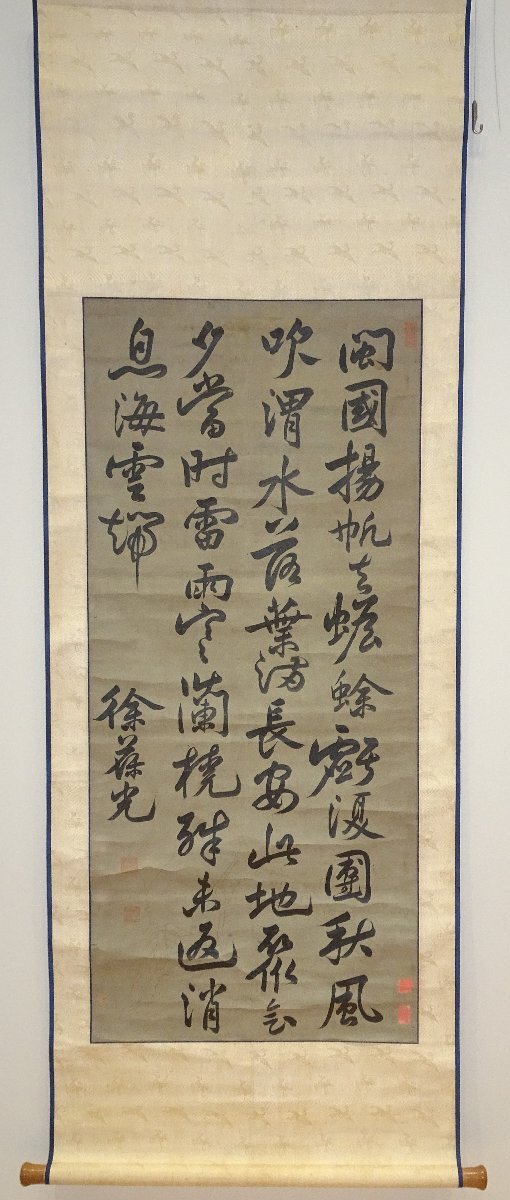 閩國揚帆去蟾蜍虧復團秋風
吹渭水落葉滿長安此地聚會
夕當時雷雨寒蘭橈殊未返消
息海雲端
徐葆光